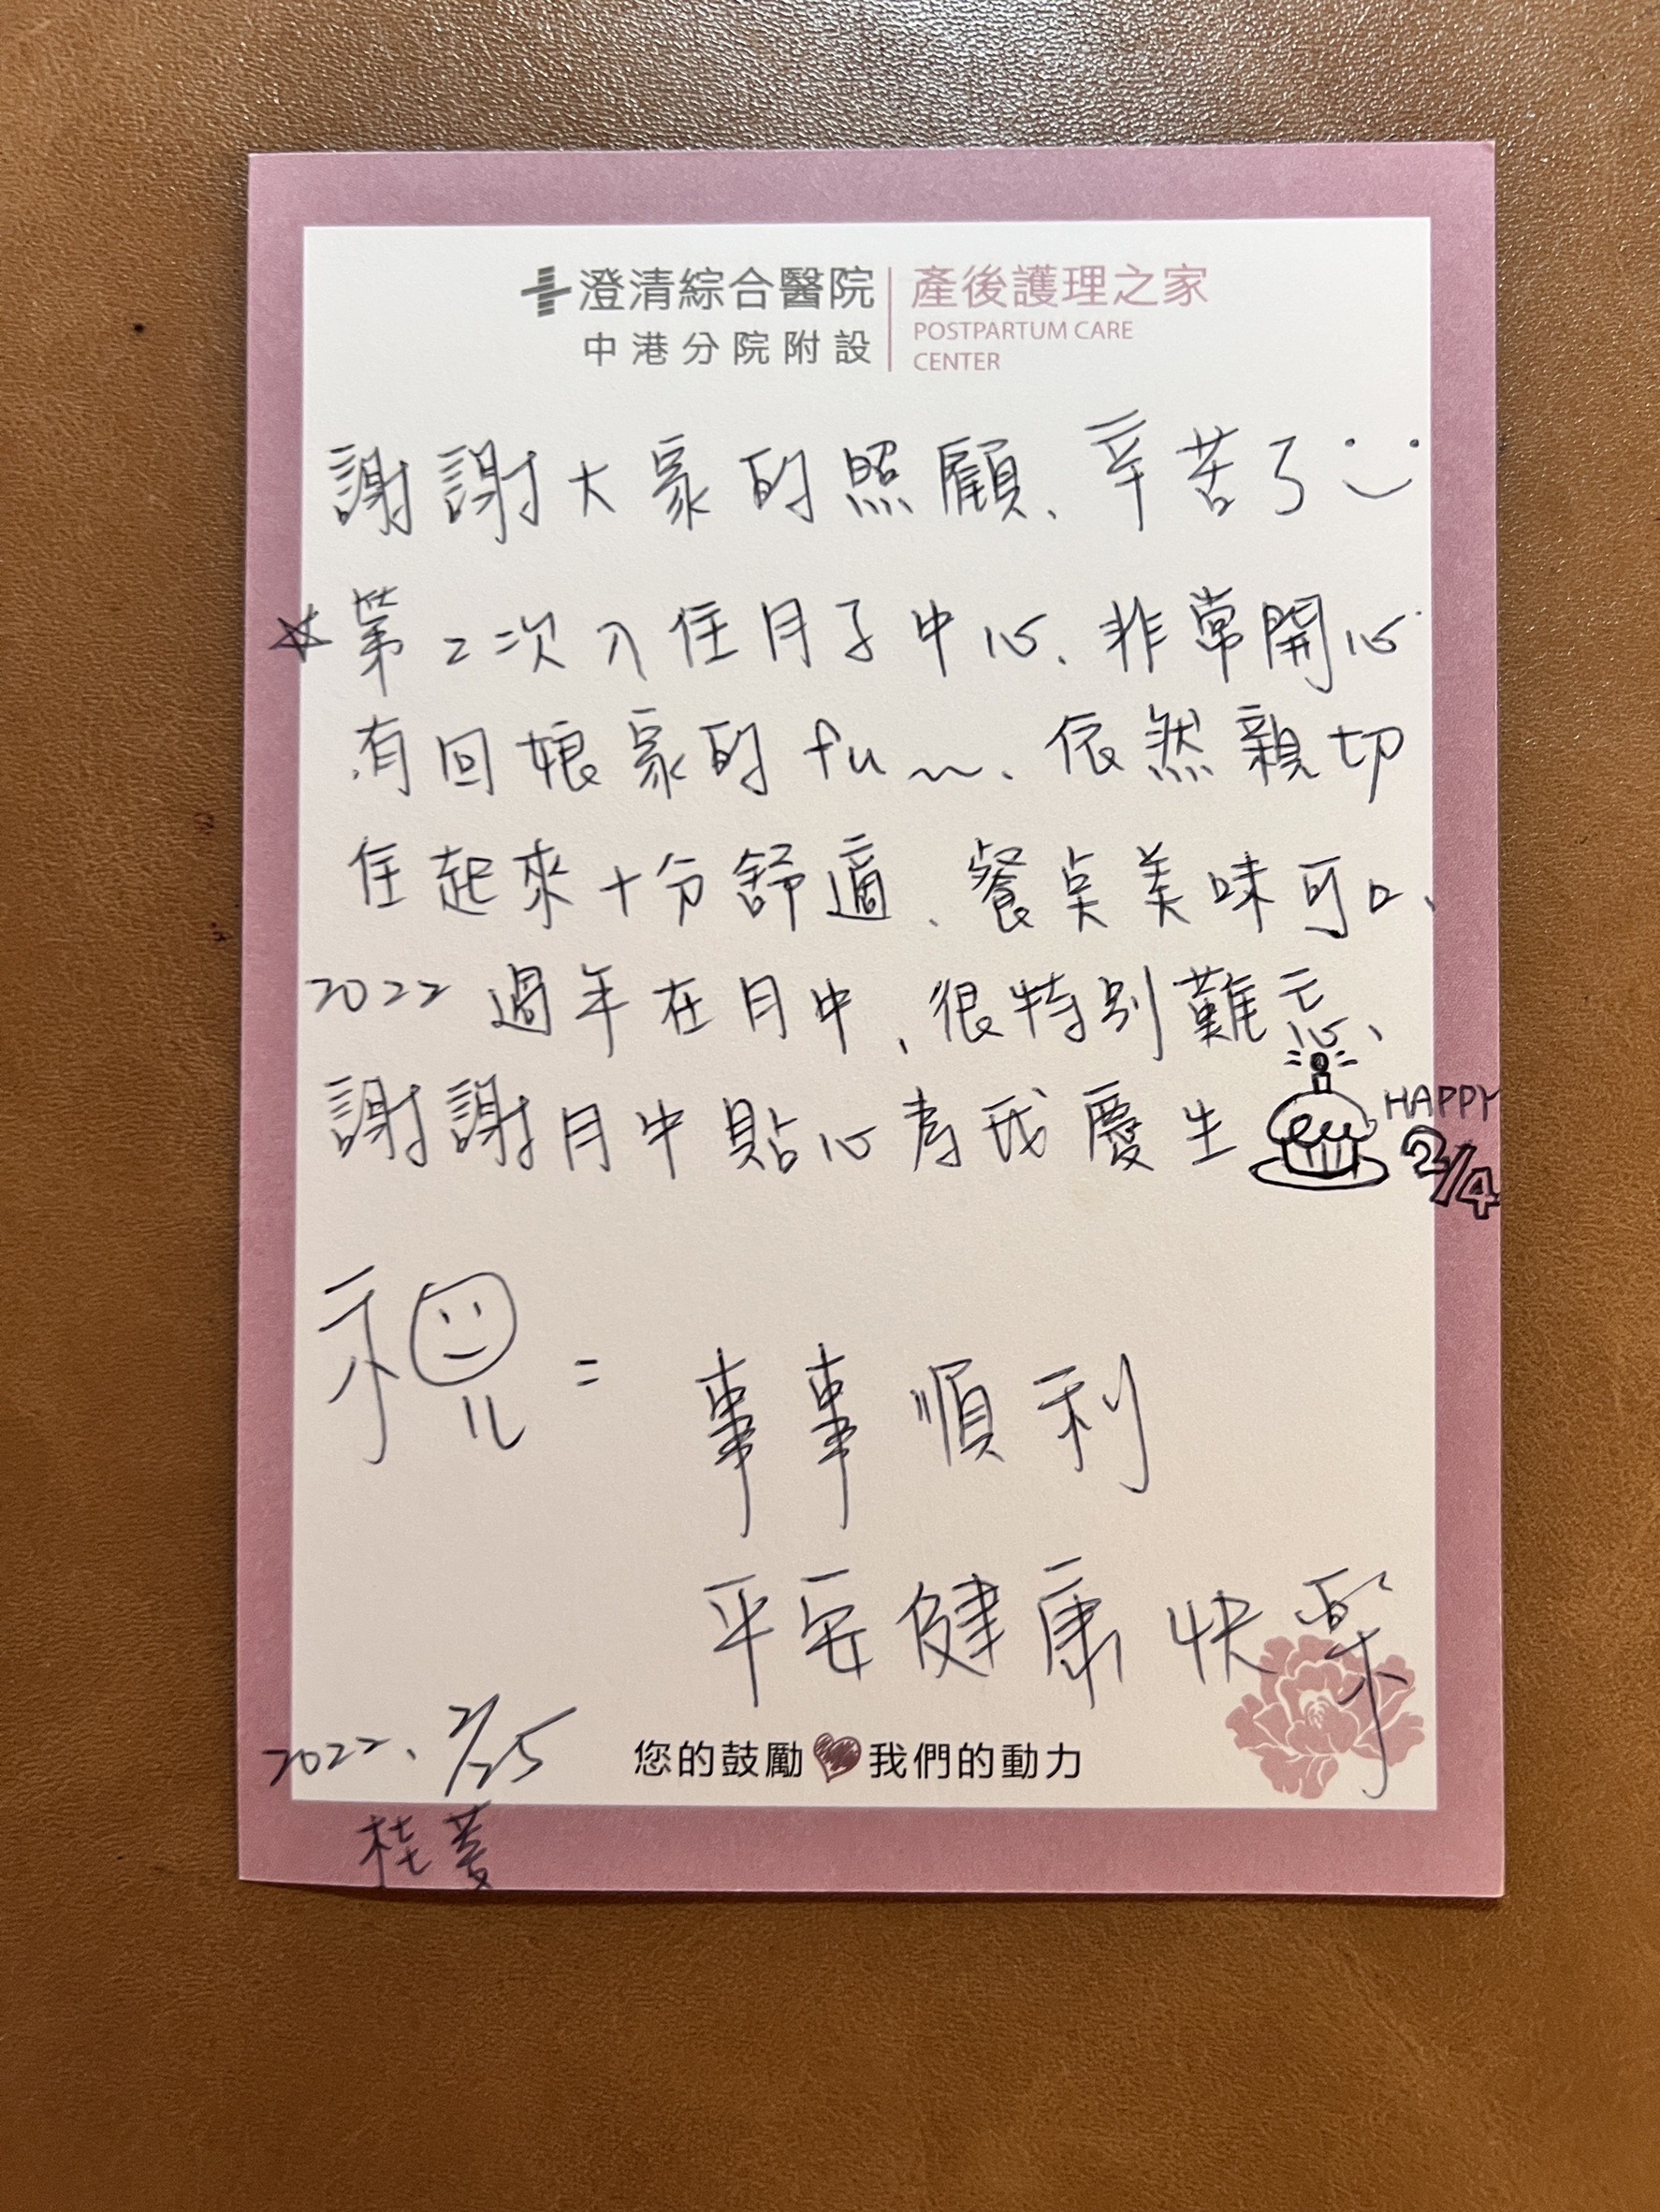 澄清綜合醫院
中港分院附設
產後護理之家
POSTPARTUM CARE
CENTER
謝謝大家的照顧、辛苦了
第二次入住月子中心、非常開心
有回娘家的fu~、依然親切
住起來十分舒適、餐點美味可口、
2022 過年在月中、很特別難忘、
謝謝月中貼心為我慶生
HAPPY
2/4
祝=
事事順利
平安健康快樂
2022、2/25
您的鼓勵 我們的動力
桂菱